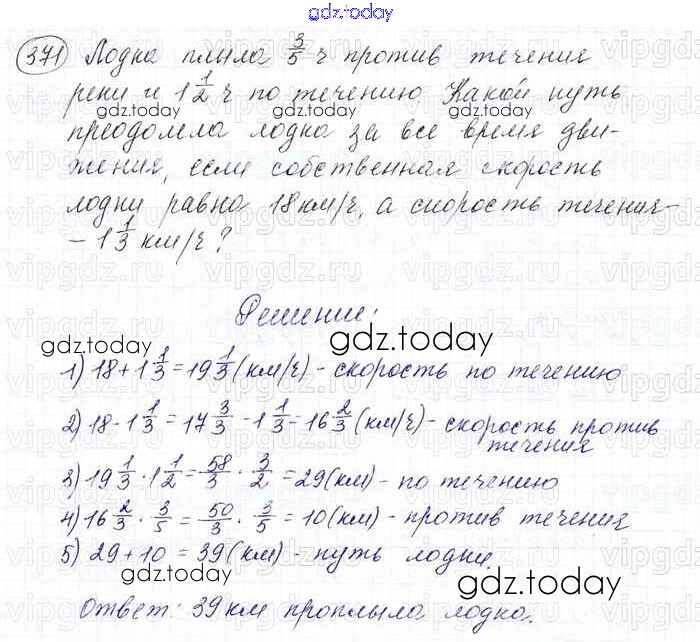 gdz.today
371 Лодка плыла 3/5 ч против течения
реки и 1 1/2 ч по течению. Какой путь
gdz.today gdz.today
преодолела лодка за все время дви-
жения, если собственная скорость
gdz.today gdz.today
лодки равна 18 км/ч, а скорость течения -
- 1 1/3 км/ч?
Решение:
gdz.today gdz.today
1) 18 + 1 1/3 = 19 1/3 (км/ч) - скорость по течению
2) 18 - 1 1/3 = 17 3/3 - 1 1/3 = 16 2/3 (км/ч) - скорость против
течения
3) 19 1/3 · 1 1/2 = 58/3 · 3/2 = 29 (км) - по течению
4) 16 2/3 · 3/5 = 50/3 · 3/5 = 10 (км) - против течения
5) 29 + 10 = 39 (км) - путь лодки.
gdz.today gdz.today
Ответ: 39 км проплыла лодка.